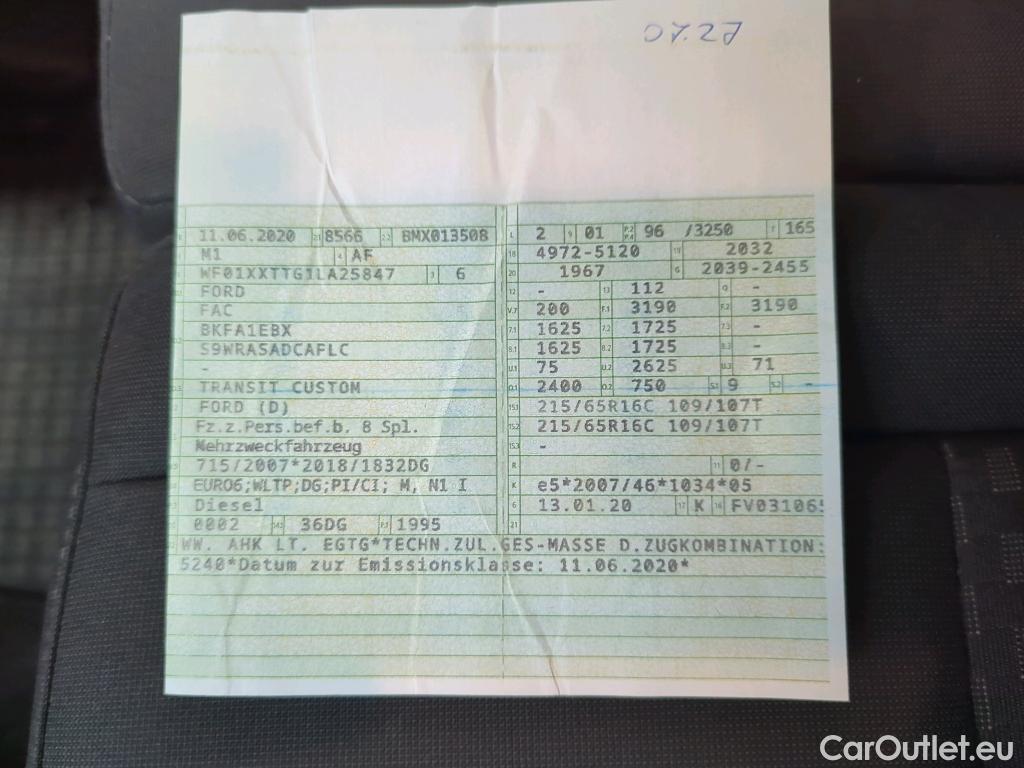 07.27
11.06.2020 2.1 8566 2.2 BMX013508
M1 4 AF
WF01XXTTG1LA25847 3 6
FORD
FAC
BKFA1EBX
S9WRASADCAFLC
-
TRANSIT CUSTOM
FORD (D)
Fz.z.Pers.bef.b. 8 Spl.
Mehrzweckfahrzeug
715/2007*2018/1832DG
EURO6;WLTP;DG;PI/CI; M, N1 I
Diesel
0002 14.1 36DG P.1 1995
L 2 9 01 P.2 P.4 96 /3250 T 165
18 4972-5120 19 2032
20 1967 G 2039-2455
12 - 13 112 Q -
V.7 200 F.1 3190 F.2 3190
7.1 1625 7.2 1725 7.3 -
8.1 1625 8.2 1725 8.3 -
U.1 75 U.2 2625 U.3 71
O.1 2400 O.2 750 S.1 9 S.2 -
15.1 215/65R16C 109/107T
15.2 215/65R16C 109/107T
15.3 -
R 11 0/-
K e5*2007/46*1034*05
6 13.01.20 17 K 16 FV031065
21
WW. AHK LT. EGTG*TECHN.ZUL.GES-MASSE D.ZUGKOMBINATION:
5240*Datum zur Emissionsklasse: 11.06.2020*
CarOutlet.eu